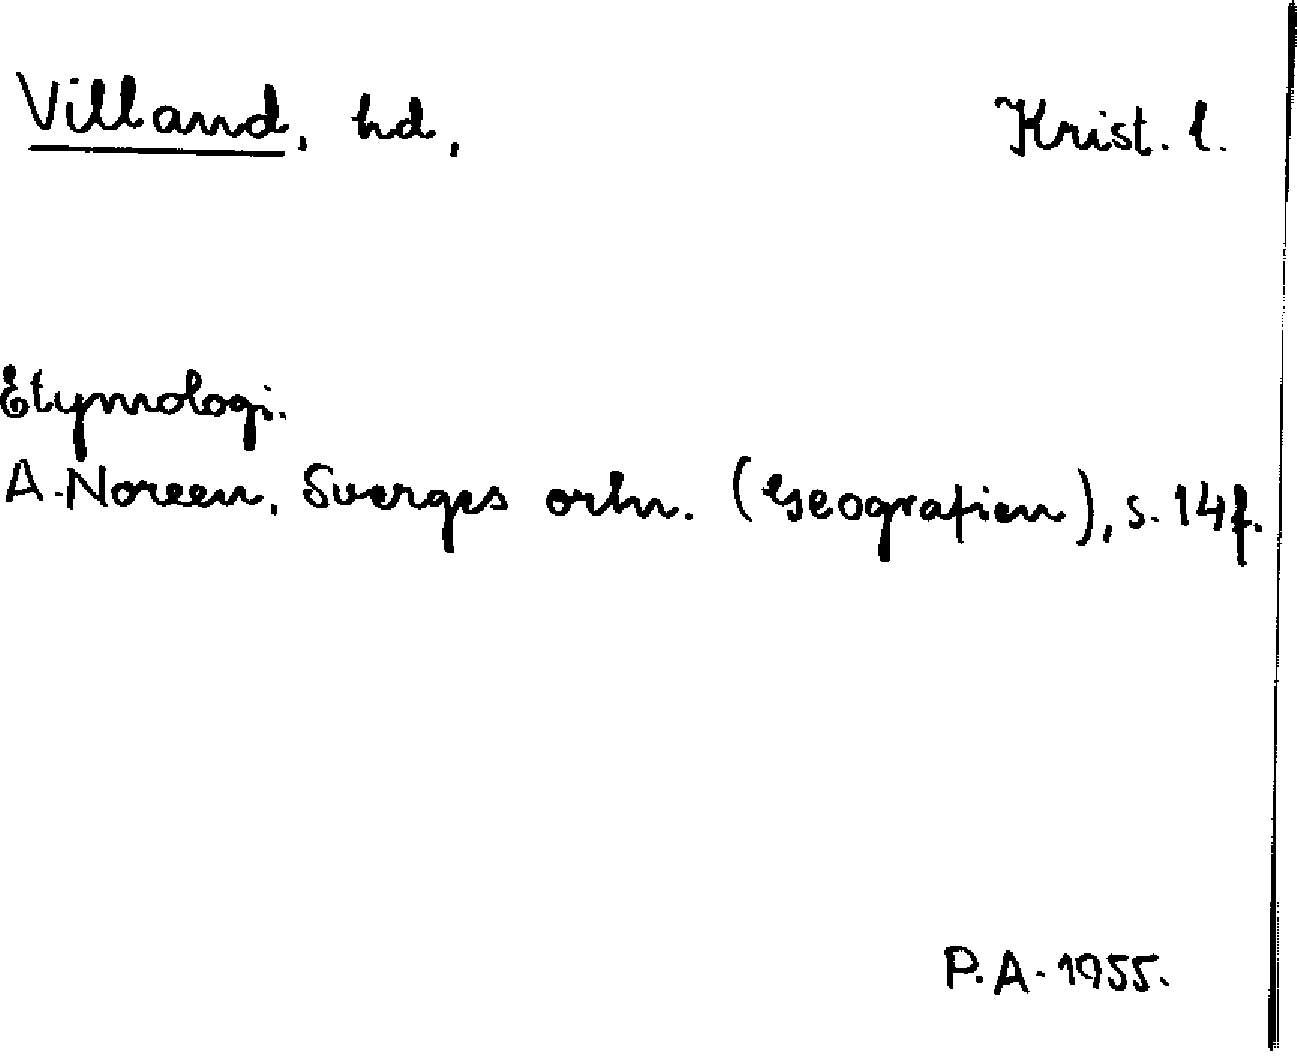 Villand, hd, Krist. l.
Etymologi.
A. Noreen, Sverges ortn. (Geografien), s. 14 f.
P. A. 1955.